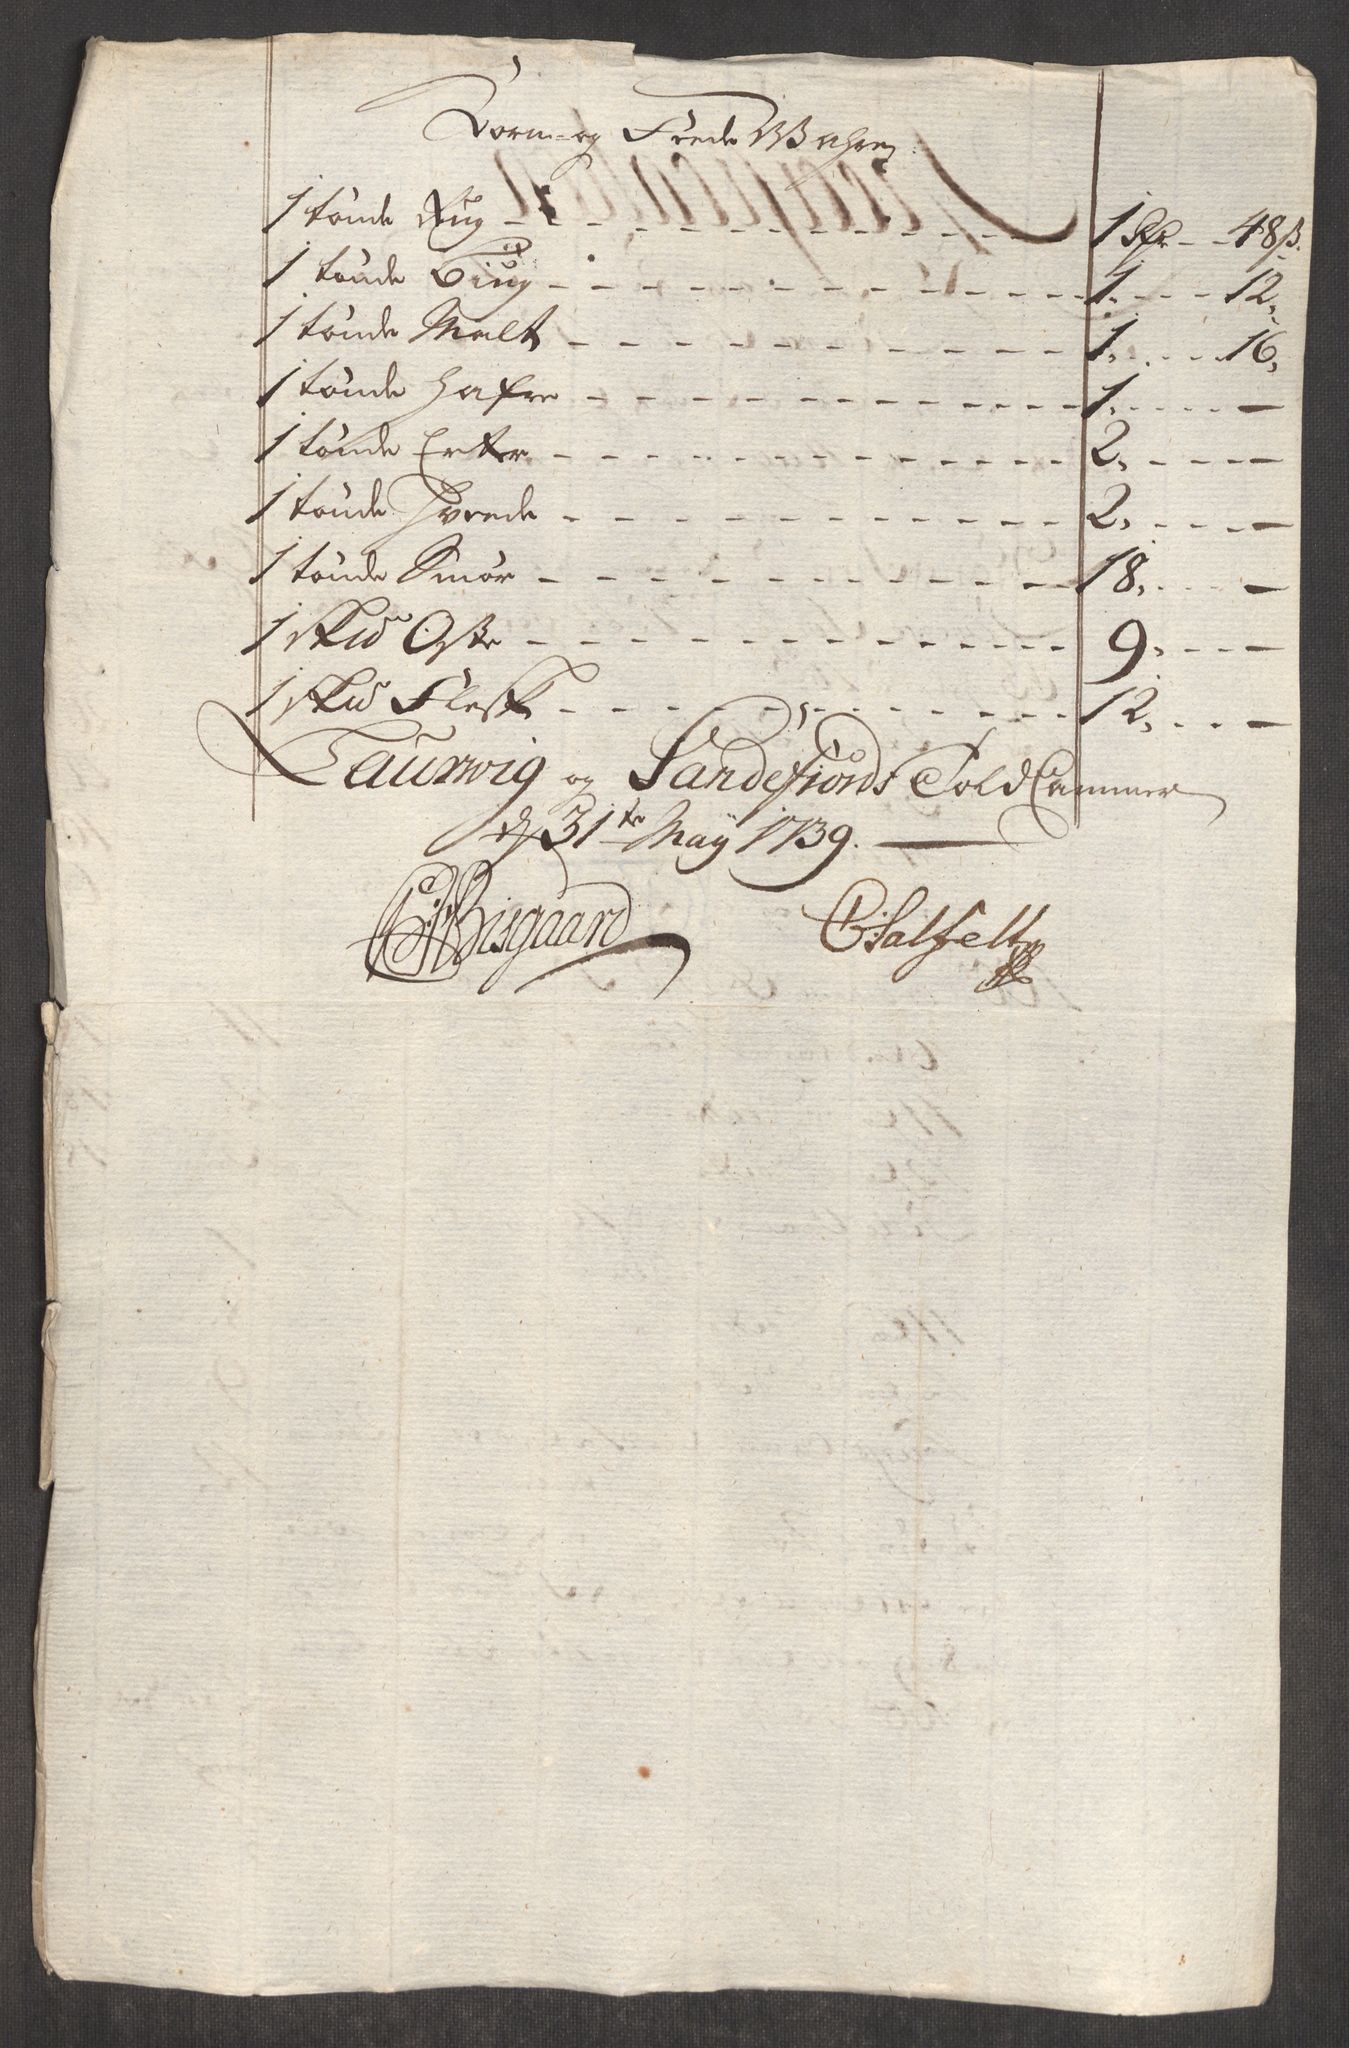 Korn- og Fæde Wahre
1 tønde Rug - - - 1 Rdr - - 48 ß.
1 tønde Biug - - - 1. - - - 12,
1 tønde Malt - - - 1, - - - 16,
1 tønde Hafre - - - 1, - - - —
1 tønde Erter - - - 2, - - - —
1 tønde Hvede - - - 2, - - - —
1 tønde Smør - - - 18, - - - —
1 skud Oste - - - 9, - - - —
1 skud Flesk - - - 12, - - - —
Laurwig og Sandefiords Told Cammer
d 31te May 1739.
Bisgaard
C Salfelt